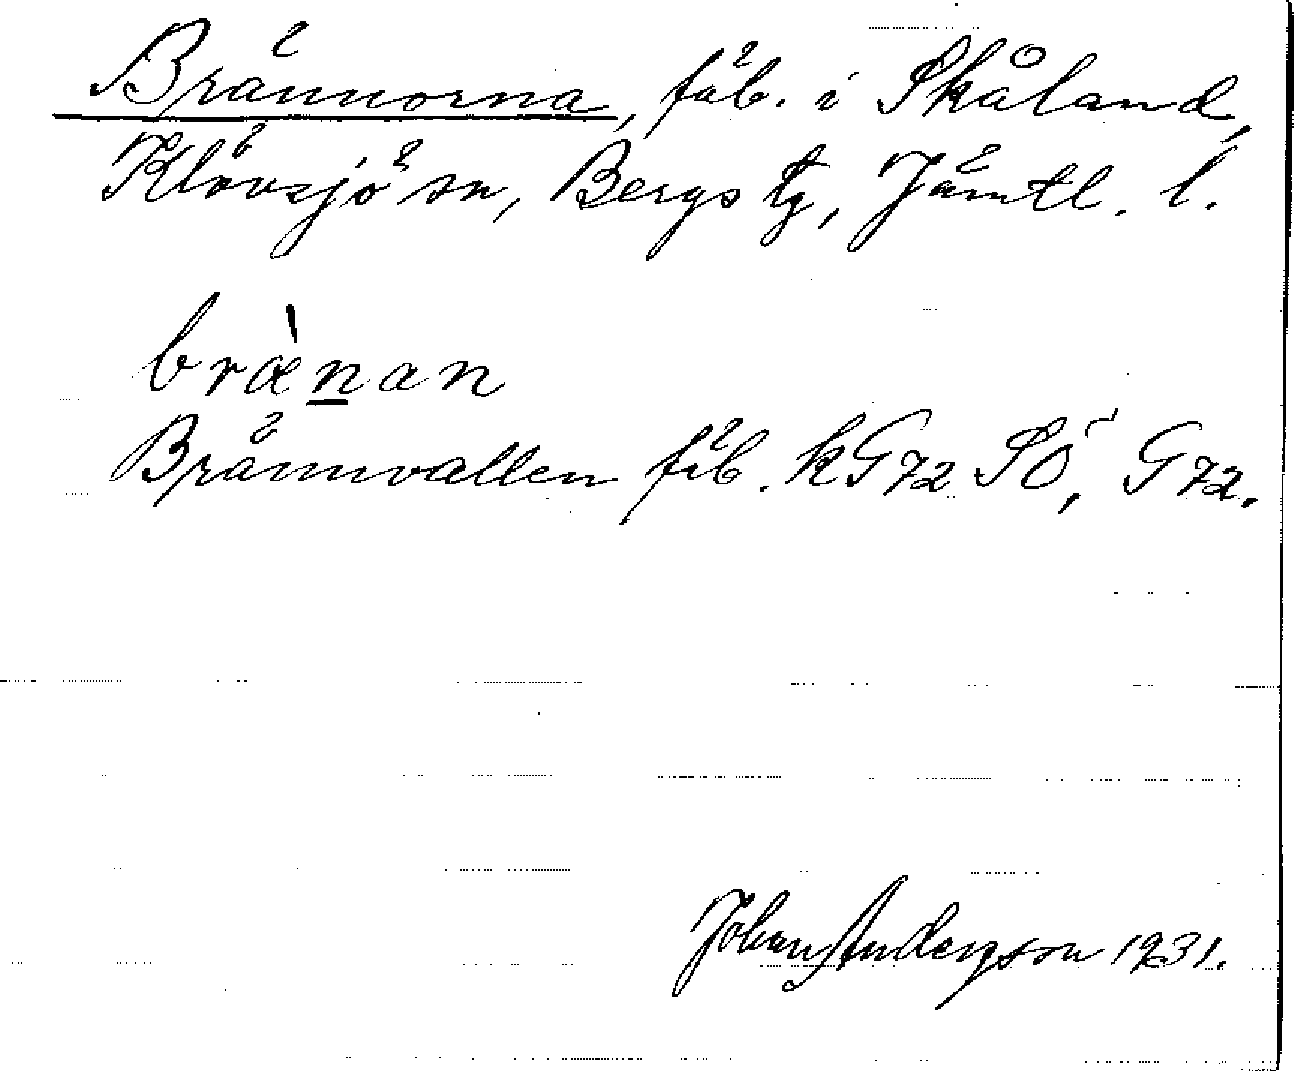 Brännorna, fäb. i Skåland,
Klövsjö sn, Bergs tg, Jämtl. l.
bræ̀nan
Brännvallen fäb. kG72 SÖ, G72.
Johan Andersson 1931.